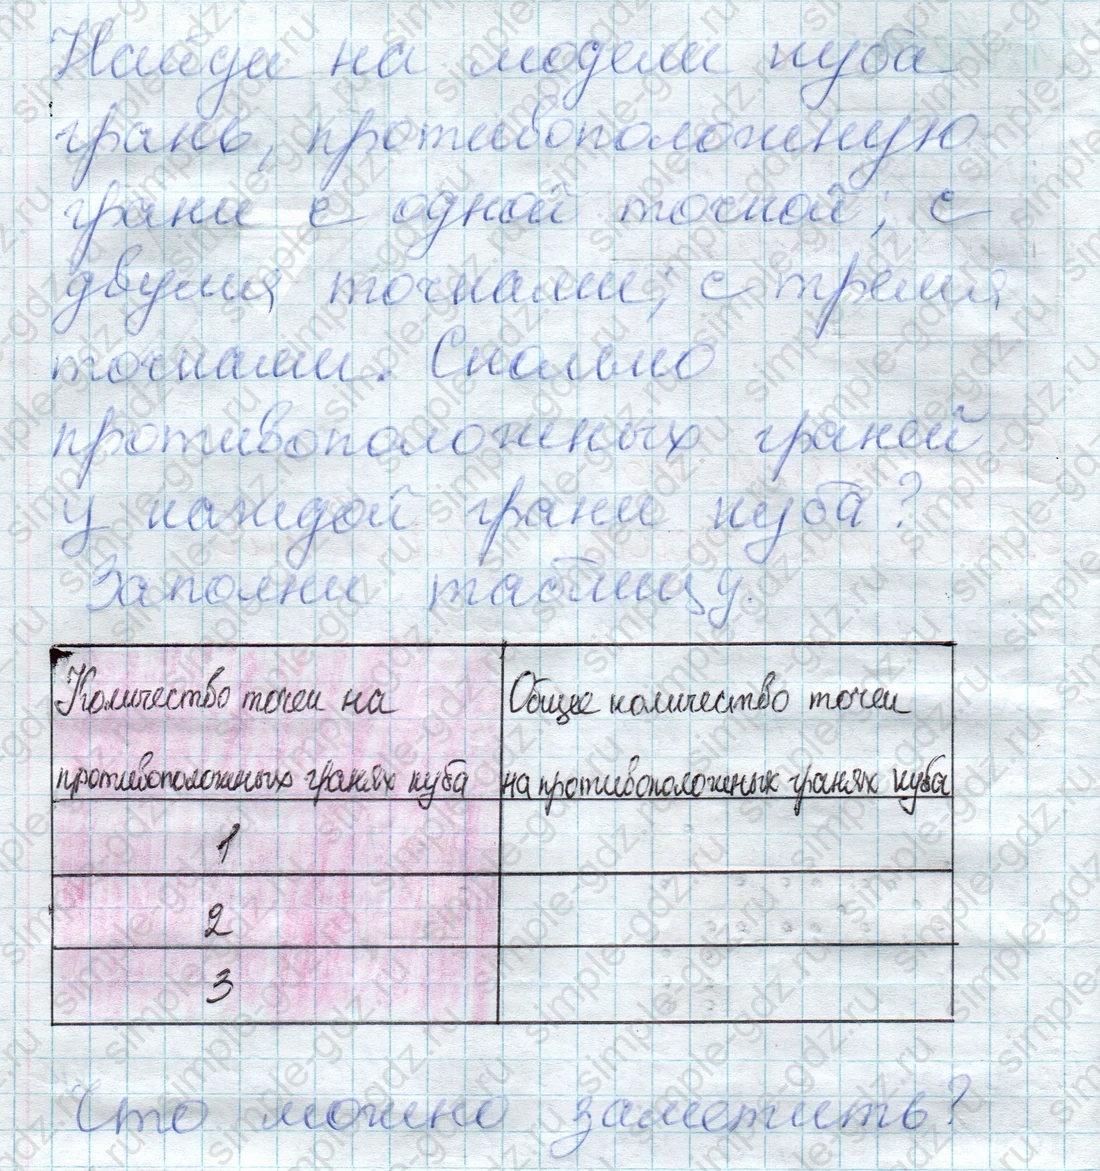 Найди на модели куба
грань, противоположную
грани с одной точкой; с
двумя точками; с тремя
точками. Сколько
противоположных граней
у каждой грани куба?
Заполни таблицу.
Количество точек на
противоположных гранях куба
Общее количество точек
на противоположных гранях куба
1
2
3
Что можно заметить?
simple-gdz.ru